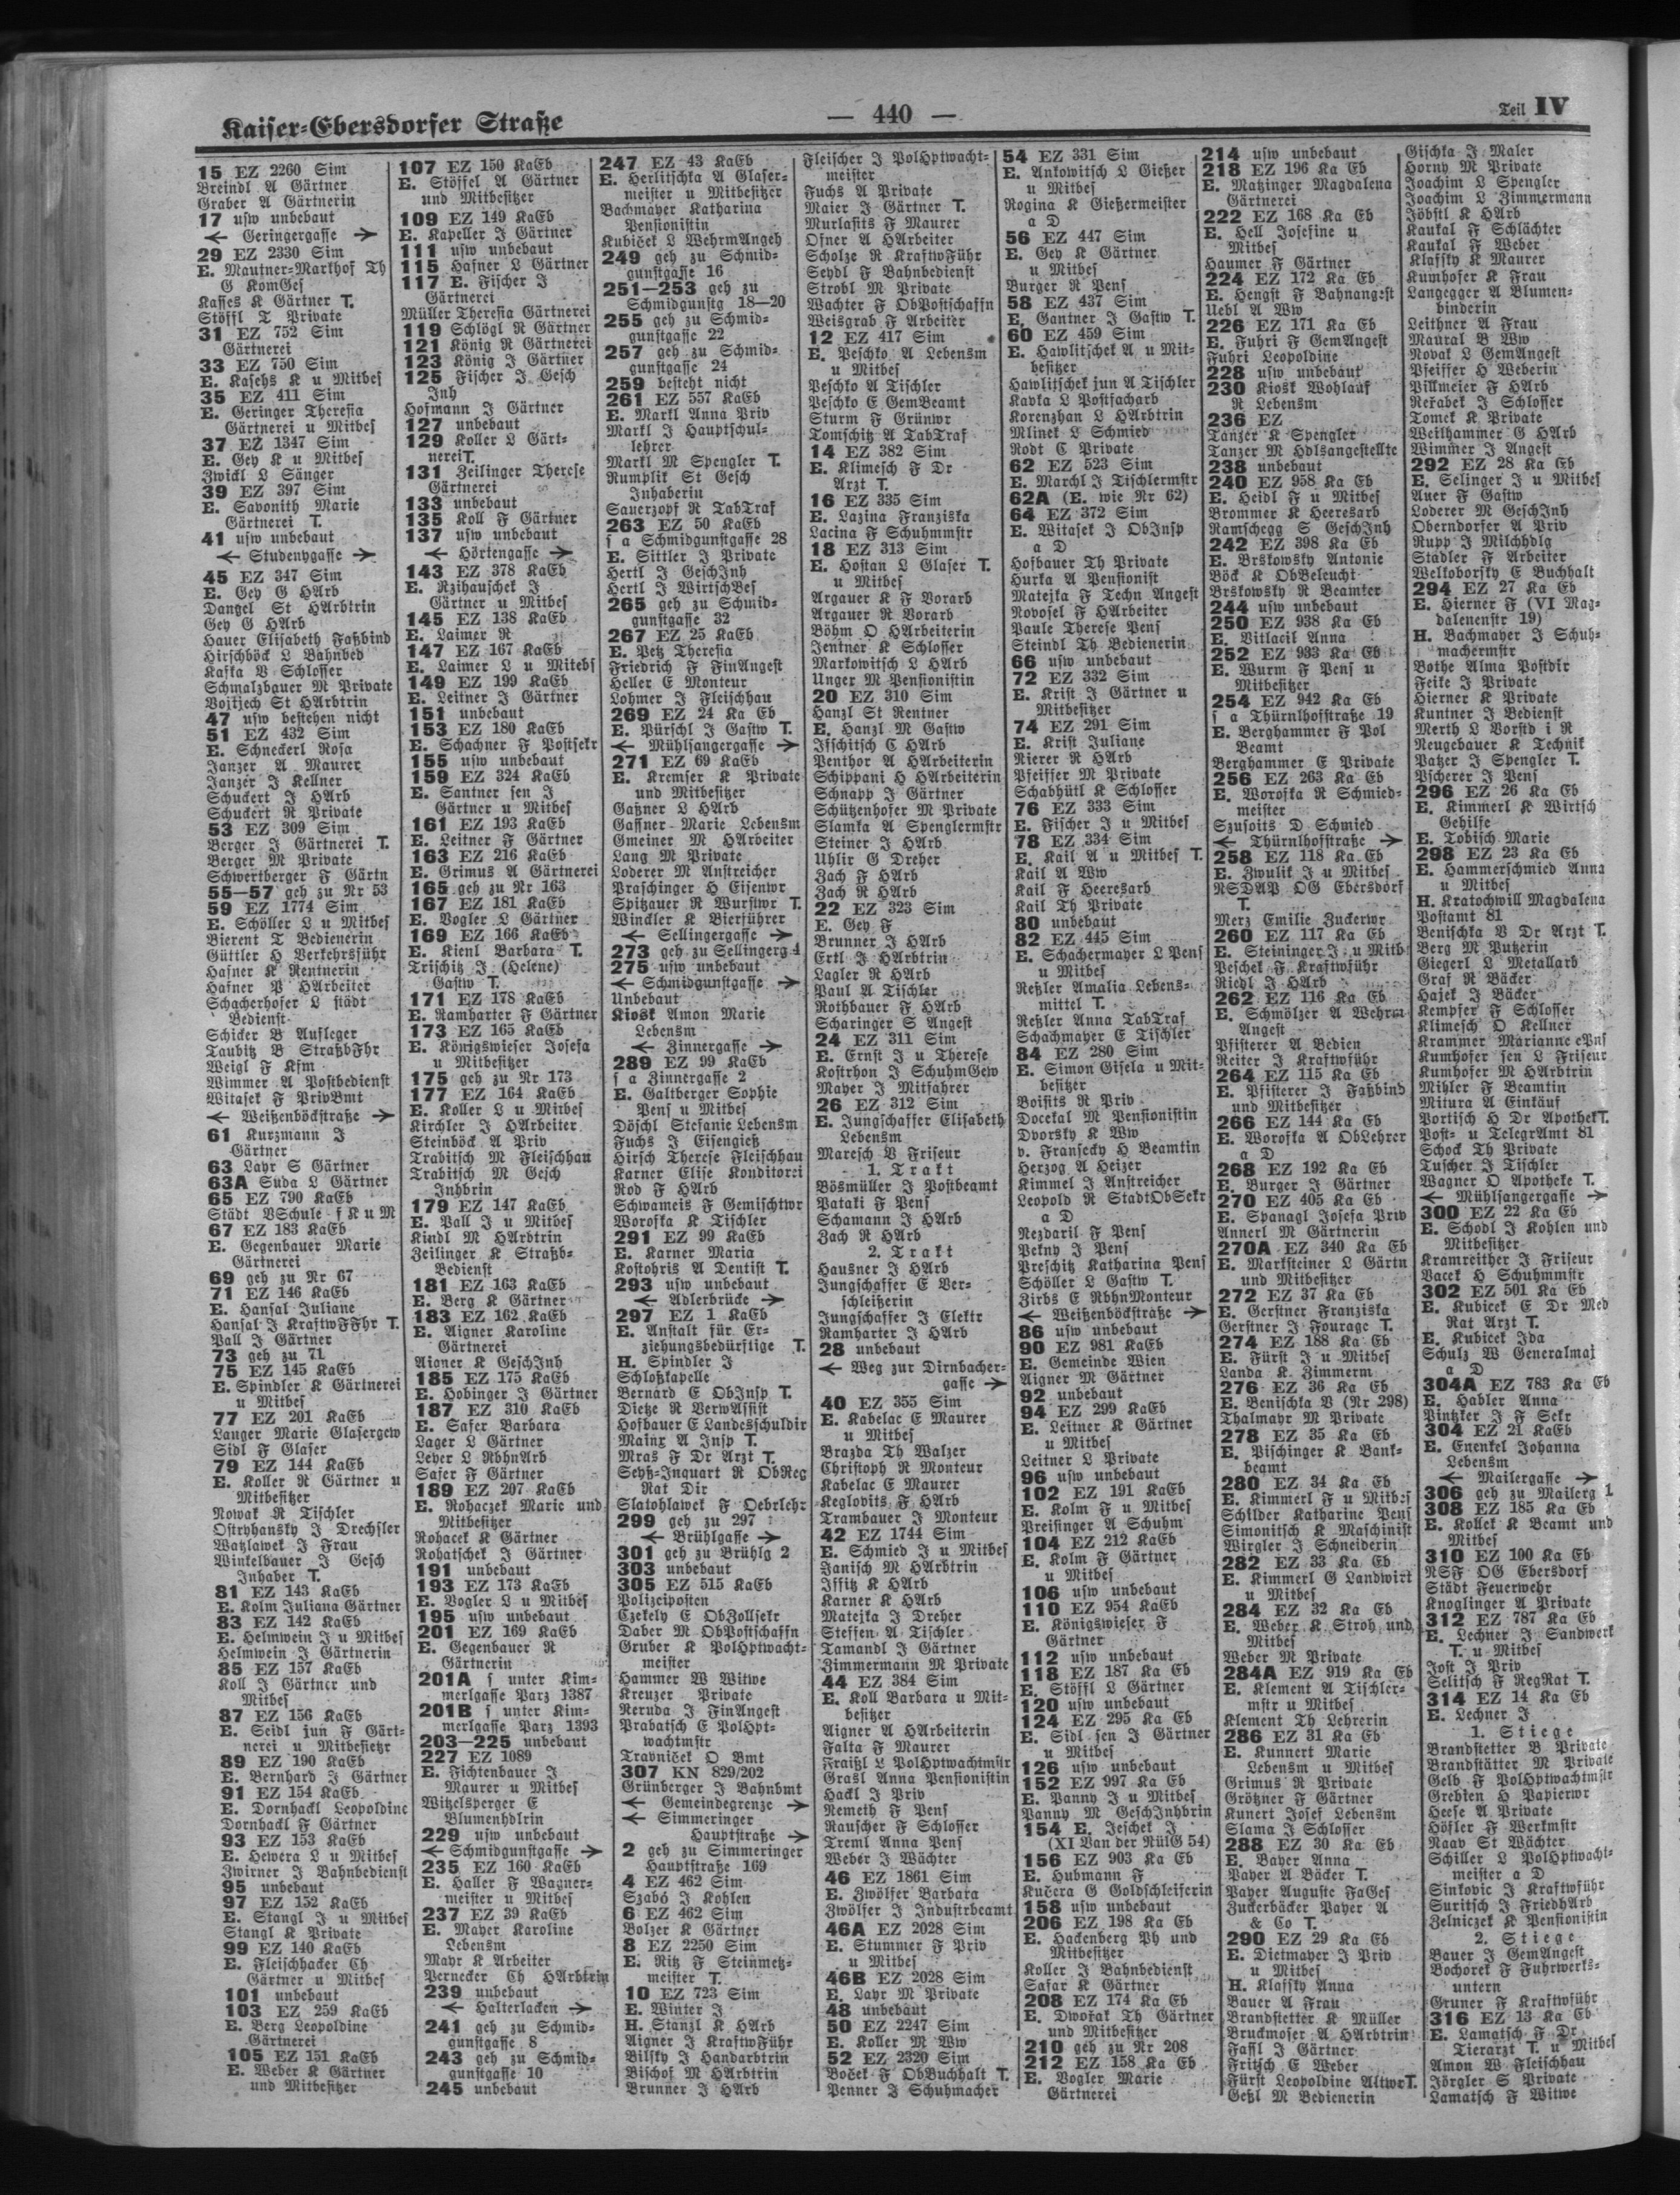 Kaiser-Ebersdorfer Straße
— 440 —
Teil IV
15 EZ 2260 Sim
Breindl A Gärtner
Graber A Gärtnerin
17 usw unbebaut
← Geringergasse →
29 EZ 2330 Sim
E. Mautner-Markhof Th
G KomGes
Kasses K Gärtner T.
Stöffl T Private
31 EZ 752 Sim
Gärtnerei
33 EZ 750 Sim
E. Kasehs K u Mitbes
35 EZ 411 Sim
E. Geringer Theresia
Gärtnerei u Mitbes
37 EZ 1347 Sim
E. Gey K u Mitbes
Zwickl L Sänger
39 EZ 397 Sim
E. Savonith Marie
Gärtnerei T.
41 usw unbebaut
← Studenygasse →
45 EZ 347 Sim
E. Gey G HArb
Dangel St HArbtrin
Gey G HArb
Hauer Elisabeth Faßbind
Hirschböck L Bahnbed
Kafka V Schlosser
Schmalzbauer M Private
Vojtjech St HArbtrin
47 usw bestehen nicht
51 EZ 432 Sim
E. Schneckerl Rosa
Janzer A Maurer
Janzer J Kellner
Schuckert J HArb
Schuckert R Private
53 EZ 309 Sim
Berger J Gärtnerei T.
Berger M Private
Schwertberger F Gärtn
55—57 geh zu Nr 53
59 EZ 1774 Sim
E. Schöller L u Mitbes
Bierent T Bedienerin
Güttler H Verkehrsführ
Hafner K Rentnerin
Hafner P HArbeiter
Schacherhofer L städt
Bedienst
Schicker W Aufleger
Taubitz B StraßbFhr
Weigl F Kfm
Wimmer A Postbedienst
Witasek F PrivBmt
← Weißenböckstraße →
61 Kurzmann J
Gärtner
63 Layr S Gärtner
63A Suda L Gärtner
65 EZ 790 KaEb
Städt VSchule f K u M
67 EZ 183 KaEb
E. Gegenbauer Marie
Gärtnerei
69 geh zu Nr 67
71 EZ 146 KaEb
E. Hansal Juliane
Hansal J KraftwFFhr T.
Pall J Gärtner
73 geh zu 71
75 EZ 145 KaEb
E. Spindler K Gärtnerei
u Mitbes
77 EZ 201 KaEb
Langer Marie Glasergew
Sidl F Glaser
79 EZ 144 KaEb
E. Koller R Gärtner u
Mitbesitzer
Nowak R Tischler
Ostryhansky J Drechsler
Watzlawek J Frau
Winkelbauer J Gesch
Inhaber T.
81 EZ 143 KaEb
E. Kolm Juliana Gärtner
83 EZ 142 KaEb
E. Helmwein J u Mitbes
Helmwein J Gärtnerin
85 EZ 157 KaEb
Koll J Gärtner und
Mitbes
87 EZ 156 KaEb
E. Seidl jun F Gärt-
nerei u Mitbesietzr
89 EZ 190 KaEb
E. Bernhard J Gärtner
91 EZ 154 KaEb
E. Dornhackl Leopoldine
Dornhackl F Gärtner
93 EZ 153 KaEb
E. Hewera L u Mitbes
Zwirner J Bahnbedienst
95 unbebaut
97 EZ 152 KaEb
E. Stangl J u Mitbes
Stangl K Private
99 EZ 140 KaEb
E. Fleischhacker Ch
Gärtner u Mitbes
101 unbebaut
103 EZ 259 KaEb
E. Berg Leopoldine
Gärtnerei
105 EZ 151 KaEb
E. Weber K Gärtner
und Mitbesitzer
107 EZ 150 KaEb
E. Stöffel A Gärtner
und Mitbesitzer
109 EZ 149 KaEb
E. Kapeller J Gärtner
111 usw unbebaut
115 Hafner L Gärtner
117 E. Fischer J
Gärtnerei
Müller Theresia Gärtnerei
119 Schlögl R Gärtner
121 König R Gärtnerei
123 König J Gärtner
125 Fischer J Gesch
Inh
Hofmann J Gärtner
127 unbebaut
129 Koller L Gärt-
nerei T.
131 Zeilinger Therese
Gärtnerei
133 unbebaut
135 Koll F Gärtner
137 usw unbebaut
← Hörtengasse →
143 EZ 378 KaEb
E. Rzihauschek J
Gärtner u Mitbes
145 EZ 138 KaEb
E. Laimer R
147 EZ 167 KaEb
E. Laimer L u Mitebs
149 EZ 199 KaEb
E. Leitner J Gärtner
151 unbebaut
153 EZ 180 KaEb
E. Schachner F Postsekr
155 usw unbebaut
159 EZ 324 KaEb
E. Santner sen J
Gärtner u Mitbes
161 EZ 193 KaEb
E. Leitner F Gärtner
163 EZ 216 KaEb
E. Grimus A Gärtnerei
165 geh zu Nr 163
167 EZ 181 KaEb
E. Vogler L Gärtner
169 EZ 166 KaEb
E. Kienl Barbara T.
Trischitz J (Helene)
Gastw T.
171 EZ 178 KaEb
E. Ramharter F Gärtner
173 EZ 165 KaEb
E. Königswieser Josefa
u Mitbesitzer
175 geh zu Nr 173
177 EZ 164 KaEb
E. Koller L u Mitbes
Kirchler J HArbeiter
Steinböck A Priv
Trabitsch M Fleischhau
Trabitsch M Gesch
Inhbrin
179 EZ 147 KaEb
E. Pall J u Mitbes
Kindl M HArbtrin
Zeilinger K Straßb-
Bedienst
181 EZ 163 KaEb
E. Berg K Gärtner
183 EZ 162 KaEb
E. Aigner Karoline
Gärtnerei
Aigner K GeschInh
185 EZ 175 KaEb
E. Hobinger J Gärtner
187 EZ 310 KaEb
E. Safer Barbara
Lager L Gärtner
Leyer L RbhnArb
Safer F Gärtner
189 EZ 207 KaEb
E. Rohaczek Marie und
Mitbesitzer
Rohacek K Gärtner
Rohatschek J Gärtner
191 unbebaut
193 EZ 173 KaEb
E. Vogler L u Mitbes
195 usw unbebaut
201 EZ 169 KaEb
E. Gegenbauer R
Gärtnerin
201A s unter Kim-
merlgasse Parz 1387
201B s unter Kim-
merlgasse Parz 1393
203—225 unbebaut
227 EZ 1089
E. Fichtenbauer J
Maurer u Mitbes
Witzelsperger E
Blumenhdlrin
229 usw unbebaut
← Schmidgunstgasse →
235 EZ 160 KaEb
E. Haller F Wagner-
meister u Mitbes
237 EZ 39 KaEb
E. Mayer Karoline
Lebensm
Mayr K Arbeiter
Pernecker Ch HArbtrin
239 unbebaut
← Halterlacken →
241 geh zu Schmid-
gunstgasse 8
243 geh zu Schmid-
gunstgasse 10
245 unbebaut
247 EZ 43 KaEb
E. Herlitschka A Glaser-
meister u Mitbesitzer
Bachmayer Katharina
Pensionistin
Kubiček L WehrmAngeh
249 geh zu Schmid-
gunstgasse 16
251—253 geh zu
Schmidgunstg 18—20
255 geh zu Schmid-
gunstgasse 22
257 geh zu Schmid-
gunstgasse 24
259 besteht nicht
261 EZ 557 KaEb
E. Markl Anna Priv
Markl J Hauptschul-
lehrer
Markl M Spengler T.
Rumplik St Gesch
Inhaberin
Sauerzopf R TabTraf
263 EZ 50 KaEb
s a Schmidgunstgasse 28
E. Sittler J Private
Hertl J GeschInh
Hertl J WirtschBes
265 geh zu Schmid-
gunstgasse 32
267 EZ 25 KaEb
E. Petz Theresia
Friedrich F FinAngest
Heller E Monteur
Lohmer J Fleischhau
269 EZ 24 Ka Eb
E. Pürschl J Gastw T.
← Mühlsangergasse →
271 EZ 69 KaEb
E. Kremser K Private
und Mitbesitzer
Gaßner L HArb
Gassner Marie Lebensm
Gmeiner M HArbeiter
Lang M Private
Loderer M Anstreicher
Praschinger H Eisenwr
Spitzauer R Wurstwr T.
Winckler K Bierführer
← Sellingergasse →
273 geh zu Sellingerg 4
275 usw unbebaut
← Schmidgunstgasse →
Unbebaut
Kiosk Amon Marie
Lebensm
← Zinnergasse →
289 EZ 99 KaEb
s a Zinnergasse 2
E. Galtberger Sophie
Pens u Mitbes
Döschl Stefanie Lebensm
Fuchs J Eisengieß
Hirsch Therese Fleischhau
Karner Elise Konditorei
Rod F HArb
Schwameis F Gemischtwr
Worofka K Tischler
291 EZ 99 KaEb
E. Karner Maria
Kostohris A Dentist T.
293 usw unbebaut
← Adlerbrücke →
297 EZ 1 KaEb
E. Anstalt für Er-
ziehungsbedürftige T.
H. Spindler J
Schloßkapelle
Bernard E ObInsp T.
Dietze R VerwAssist
Hofbauer E Landesschuldir
Mainx A Insp T.
Mras F Dr Arzt T.
Seyß-Inquart R ObReg
Rat Dir
Slatohlawek F Oebrlehr
299 geh zu 297
← Brühlgasse →
301 geh zu Brühlg 2
303 unbebaut
305 EZ 515 KaEb
Polizeiposten
Czekely E ObZollsekr
Daber M ObPostschaffn
Gruber K PolHptwacht-
meister
Hammer W Witwe
Kreuzer Private
Neruda J FinAngest
Prabatsch E PolHpt-
wachtmstr
Travniček O Bmt
307 KN 829/202
Grünberger J Bahnbmt
← Gemeindegrenze →
← Simmeringer
Hauptstraße →
2 geh zu Simmeringer
Hauptstraße 169
4 EZ 462 Sim
Szabó J Kohlen
6 EZ 462 Sim
Bolzer K Gärtner
8 EZ 2250 Sim
E. Ritz F Steinmetz-
meister T.
10 EZ 723 Sim
E. Winter J
H. Stanzl K HArb
Aigner J KraftwFühr
Bilsky J Handarbtrin
Bischof M HArbtrin
Brunner J HArb
Fleischer J PolHptwacht-
meister
Fuchs A Private
Maier J Gärtner T.
Murlasits F Maurer
Ofner A HArbeiter
Scholze R KraftwFühr
Seydl F Bahnbedienst
Strobl M Private
Wachter F ObPostschaffn
Weisgrab F Arbeiter
12 EZ 417 Sim
E. Peschko A Lebensm
u Mitbes
Peschko A Tischler
Peschko E GemBeamt
Sturm F Grünwr
Tomschitz A TabTraf
14 EZ 382 Sim
E. Klimesch F Dr
Arzt T.
16 EZ 335 Sim
E. Lazina Franziska
Lacina F Schuhmmstr
18 EZ 313 Sim
E. Hostan L Glaser T.
u Mitbes
Argauer K F Vorarb
Argauer R Vorarb
Böhm O HArbeiterin
Jentner K Schlosser
Markowitsch L HArb
Unger M Pensionistin
20 EZ 310 Sim
Hanzl St Rentner
E. Hanzl M Gastw
Isschitsch C HArb
Penthor A HArbeiterin
Schippani H HArbeiterin
Schnapp J Gärtner
Schützenhofer M Private
Slamka A Spenglermstr
Steiner J HArb
Uhlir G Dreher
Zach F HArb
Zach R HArb
22 EZ 323 Sim
E. Gey F
Brunner J HArb
Ertl J HArbtrin
Lagler R HArb
Paul A Tischler
Rothbauer F HArb
Scharinger S Angest
24 EZ 311 Sim
E. Ernst J u Therese
Kostrhon J SchuhmGew
Mayer J Mitfahrer
26 EZ 312 Sim
E. Jungschaffer Elisabeth
Lebensm
Maresch V Friseur
1. Trakt
Bösmüller J Postbeamt
Pataki F Pens
Schamann J HArb
Zach R HArb
2. Trakt
Hausner J HArb
Jungschaffer E Ver-
schleißerin
Jungschaffer J Elektr
Ramharter J HArb
28 unbebaut
← Weg zur Dirnbacher-
gasse →
40 EZ 355 Sim
E. Kabelac E Maurer
u Mitbes
Brazda Th Walzer
Christoph R Monteur
Kabelac E Maurer
Keglovits F HArb
Trambauer J Monteur
42 EZ 1744 Sim
E. Schmied J u Mitbes
Janisch M HArbtrin
Iffitz K HArb
Karner K HArb
Matejka J Dreher
Steffen A Tischler
Tamandl J Gärtner
Zimmermann M Private
44 EZ 384 Sim
E. Koll Barbara u Mit-
besitzer
Aigner A HArbeiterin
Falta F Maurer
Fraißl L PolHptwachtmstr
Grasl Anna Pensionistin
Hackl J Priv
Nemeth F Pens
Rauscher F Schlosser
Treml Anna Pens
Weber J Wächter
46 EZ 1861 Sim
E. Zwölfer Barbara
Zwölfer J Industrbeamt
46A EZ 2028 Sim
E. Stummer F Priv
u Mitbes
46B EZ 2028 Sim
E. Layr M Private
48 unbebaut
50 EZ 2247 Sim
E. Koller M Ww
52 EZ 2320 Sim
Boček F ObBuchhalt T.
Penner J Schuhmacher
54 EZ 331 Sim
E. Ankowitsch L Gießer
u Mitbes
Rogina K Gießermeister
a D
56 EZ 447 Sim
E. Gey K Gärtner
u Mitbes
Burger R Pens
58 EZ 437 Sim
E. Gantner J Gastw T.
60 EZ 459 Sim
E. Hawlitschek A u Mit-
besitzer
Hawlitschek jun A Tischler
Kavka L Postfacharb
Korenzhan L HArbtrin
Mlinek L Schmied
Rodt C Private
62 EZ 523 Sim
E. Marchl J Tischlermstr
62A (E. wie Nr 62)
64 EZ 372 Sim
E. Witasek J ObInsp
a D
Hofbauer Th Private
Hurka A Pensionist
Matejka F Techn Angest
Novosel F HArbeiter
Paule Therese Pens
Steindl Th Bedienerin
66 usw unbebaut
72 EZ 332 Sim
E. Krist J Gärtner u
Mitbesitzer
74 EZ 291 Sim
E. Krist Juliane
Nierer R HArb
Pfeiffer M Private
Schabhütl K Schlosser
76 EZ 333 Sim
E. Fischer J u Mitbes
78 EZ 334 Sim
E. Kail A u Mitbes T.
Kail A Ww
Kail F Heeresarb
Kail Th Private
80 unbebaut
82 EZ 445 Sim
E. Schachermayer L Pens
u Mitbes
Neßler Amalia Lebens-
mittel T.
Neßler Anna TabTraf
Schachmayer E Tischler
84 EZ 280 Sim
E. Simon Gisela u Mit-
besitzer
Boisits R Priv
Docekal M Pensionistin
Dvorsky K Ww
v. Fransecky H Beamtin
Herzog A Heizer
Kimmel J Anstreicher
Leopold R StadtObSekr
a D
Nezdaril F Pens
Pekny J Pens
Preschitz Katharina Pens
Schöller L Gastw T.
Zirbs E RbhnMonteur
← Weißenböckstraße →
86 usw unbebaut
90 EZ 981 KaEb
E. Gemeinde Wien
Aigner M Gärtner
92 unbebaut
94 EZ 299 KaEb
E. Leitner K Gärtner
u Mitbes
Leitner L Private
96 usw unbebaut
102 EZ 191 KaEb
E. Kolm F u Mitbes
Preisinger A Schuhm
104 EZ 212 KaEb
E. Kolm F Gärtner
u Mitbes
106 usw unbebaut
110 EZ 954 KaEb
E. Königswieser F
Gärtner
112 usw unbebaut
118 EZ 187 Ka Eb
E. Stöffl L Gärtner
120 usw unbebaut
124 EZ 295 Ka Eb
E. Sidl sen J Gärtner
u Mitbes
126 usw unbebaut
152 EZ 997 Ka Eb
E. Panny J u Mitbes
Panny M GeschInhbrin
154 E. Jeschek J
(XI Van der NülG 54)
156 EZ 903 Ka Eb
E. Hubmann F
Kučera G Goldschleiferin
158 usw unbebaut
206 EZ 198 Ka Eb
E. Hackenberg Ph und
Mitbesitzer
Koller J Bahnbedienst
Safar K Gärtner
208 EZ 174 Ka Eb
E. Dwořak Th Gärtner
und Mitbesitzer
210 geh zu Nr 208
212 EZ 158 Ka Eb
E. Vogler Marie
Gärtnerei
214 usw unbebaut
218 EZ 196 Ka Eb
E. Matzinger Magdalena
Gärtnerei
222 EZ 168 Ka Eb
E. Hell Josefine u
Mitbes
Haumer F Gärtner
224 EZ 172 Ka Eb
E. Hengst F Bahnangest
Uebl A Ww
226 EZ 171 Ka Eb
E. Fuhri F GemAngest
Fuhri Leopoldine
228 usw unbebaut
230 Kiosk Wohlauf
R Lebensm
236 EZ
Tanzer K Spengler
Tanzer M Hdlsangestellte
238 unbebaut
240 EZ 958 Ka Eb
E. Heidl F u Mitbes
Brommer K Heeresarb
Ramschegg S GeschInh
242 EZ 398 Ka Eb
E. Brskowsky Antonie
Böck K ObBeleucht
Brskowsky R Beamter
244 usw unbebaut
250 EZ 938 Ka Eb
E. Vitlacil Anna
252 EZ 933 Ka Eb
E. Wurm F Pens u
Mitbesitzer
254 EZ 942 Ka Eb
s a Thürnlhofstraße 19
E. Berghammer F Pol
Beamt
Berghammer E Private
256 EZ 263 Ka Eb
E. Worofka R Schmied-
meister
Szusoits D Schmied
← Thürnlhofstraße →
258 EZ 118 Ka Eb
E. Zwulik J u Mitbes
NSDAP OG Ebersdorf
T.
Merz Emilie Zuckerwr
260 EZ 117 Ka Eb
E. Steininger J u Mitb
Peschel F Kraftwführ
Riedl J HArb
262 EZ 116 Ka Eb
E. Schmölzer A Wehrm
Angest
Pfisterer A Bedien
Reiter J Kraftwführ
264 EZ 115 Ka Eb
E. Pfisterer J Faßbind
und Mitbesitzer
266 EZ 144 Ka Eb
E. Worofka A ObLehrer
a D
268 EZ 192 Ka Eb
E. Burger J Gärtner
270 EZ 405 Ka Eb
E. Spanagl Josefa Priv
Annerl M Gärtnerin
270A EZ 340 Ka Eb
E. Marksteiner L Gärtn
und Mitbesitzer
272 EZ 37 Ka Eb
E. Gerstner Franziska
Gerstner J Fourage T.
274 EZ 188 Ka Eb
E. Fürst J u Mitbes
Landa K Zimmerm
276 EZ 36 Ka Eb
E. Benischka V (Nr 298)
Thalmayr M Private
278 EZ 35 Ka Eb
E. Pischinger K Bank-
beamt
280 EZ 34 Ka Eb
E. Kimmerl F u Mitbes
Schilder Katharine Pens
Simonitsch K Maschinist
Wirgler J Schneiderin
282 EZ 33 Ka Eb
E. Kimmerl G Landwirt
u Mitbes
284 EZ 32 Ka Eb
E. Weber K Stroh und
Mitbes
Weber M Private
284A EZ 919 Ka Eb
E. Klement A Tischler-
mstr u Mitbes
Klement Th Lehrerin
286 EZ 31 Ka Eb
E. Kunnert Marie
Lebensm u Mitbes
Grimus R Private
Größner F Gärtner
Kunert Josef Lebensm
Slama J Schlosser
288 EZ 30 Ka Eb
E. Bayer Anna
Payer A Bäcker T.
Payer Auguste FaGes
Zuckerbäcker Payer A
& Co T.
290 EZ 29 Ka Eb
E. Dietmayer J Priv
u Mitbes
H. Klaffky Anna
Bauer A Frau
Brandstetter K Müller
Bruckmoser A HArbtrin
Fassl J Gärtner
Fritsch E Weber
Fürst Leopoldine AltwrT.
Geßl M Bedienerin
Gischka J Maler
Horny M Private
Joachim L Spengler
Joachim L Zimmermann
Jöbstl K HArb
Kaukal F Schlächter
Kaukal F Weber
Klaffky K Maurer
Kumhofer K Frau
Langegger A Blumen-
binderin
Leithner A Frau
Maural B Ww
Novak L GemAngest
Pfeiffer H Weberin
Pillmeier F HArb
Reřabek J Schlosser
Tomek K Private
Weilhammer G HArb
Wimmer J Angest
292 EZ 28 Ka Eb
E. Selinger J u Mitbes
Auer F Gastw
Loderer M GeschInh
Oberndorfer A Priv
Rupp J Milchhdlg
Stadler F Arbeiter
Welkoborsky E Buchhalt
294 EZ 27 Ka Eb
E. Hierner F (VI Mag-
dalenenstr 19)
H. Bachmayer J Schuh-
machermstr
Bothe Alma Postdir
Feike J Private
Hierner K Private
Kuntner J Bedienst
Merth L Vorstd i R
Neugebauer K Technik
Patzer J Spengler T.
Pscherer J Pens
296 EZ 26 Ka Eb
E. Kimmerl K Wirtsch
Gehilfe
E. Tobisch Marie
298 EZ 23 Ka Eb
E. Hammerschmied Anna
u Mitbes
H. Kratochwill Magdalena
Postamt 81
Benischka V Dr Arzt T.
Berg M Putzerin
Giegerl L Metallarb
Graf R Bäcker
Hajek J Bäcker
Kempfer F Schlosser
Klimesch O Kellner
Krammer Marianne ePns
Kumhofer sen L Friseur
Kumhofer M HArbtrin
Mihler F Beamtin
Mitura A Einkäuf
Portisch H Dr ApothekT.
Post- u TelegrAmt 81
Schock Th Private
Tuscher J Tischler
Wagner O Apotheke T.
← Mühlsangergasse →
300 EZ 22 Ka Eb
E. Schodl J Kohlen und
Mitbesitzer
Kramreither J Friseur
Vacek H Schuhmmstr
302 EZ 501 Ka Eb
E. Kubicek E Dr Med
Rat Arzt T.
E. Kubicek Ida
Schulz W Generalmaj
a D
304A EZ 783 Ka Eb
E. Habler Anna
Pintzker J F Sekr
304 EZ 21 KaEb
E. Enenkel Johanna
Lebensm
← Mailergasse →
306 geh zu Mailerg 1
308 EZ 185 Ka Eb
E. Kollek K Beamt und
Mitbes
310 EZ 100 Ka Eb
NSF OG Ebersdorf
Städt Feuerwehr
Knoglinger A Private
312 EZ 787 Ka Eb
E. Lechner J Sandwerk
T. u Mitbes
Jost J Priv
Selitsch F RegRat T.
314 EZ 14 Ka Eb
E. Lechner J
1. Stiege
Brandstetter B Private
Brandstätter M Private
Gelb F PolHptwachtmstr
Grebien H Papierwr
Heese A Private
Höfler F Werkmstr
Raav St Wächter
Schiller L PolHptwacht-
meister a D
Sinkovic J Kraftwführ
Suritsch J FriedhArb
Zelniczek K Pensionistin
2. Stiege
Bauer J GemAngest
Bochorek F Fuhrwerks-
untern
Gruner F Kraftwführ
316 EZ 13 Ka Eb
E. Lamatsch F Dr
Tierarzt T. u Mitbes
Amon W Fleischhau
Jörgler S Private
Lamatsch F Witwe